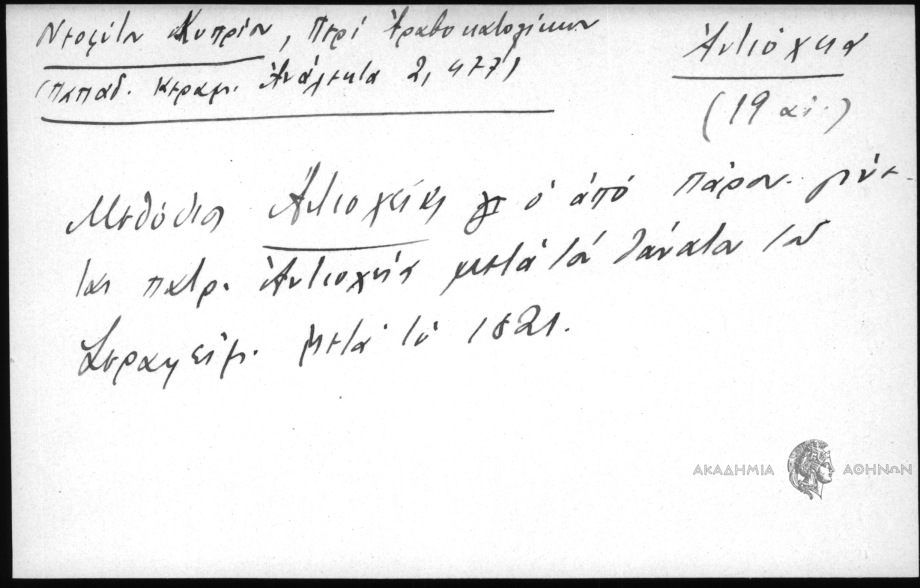 Νεοφύτου Κυπρίου, Περί Αραβοκατολίκων
(Παπαδ. Κεραμ. Ανάλεκτα 2, 477)
Αντιόχεια
(19 αἰ.)
Μεθόδιος Ἀντιοχείας ὁ ἀπό Πάρου. γίνε-
ται πατρ. Ἀντιοχείας μετά τόν θάνατον τοῦ
Σεραφείμ. Μετά τό 1821.
ΑΚΑΔΗΜΙΑ ΑΘΗΝΩΝ